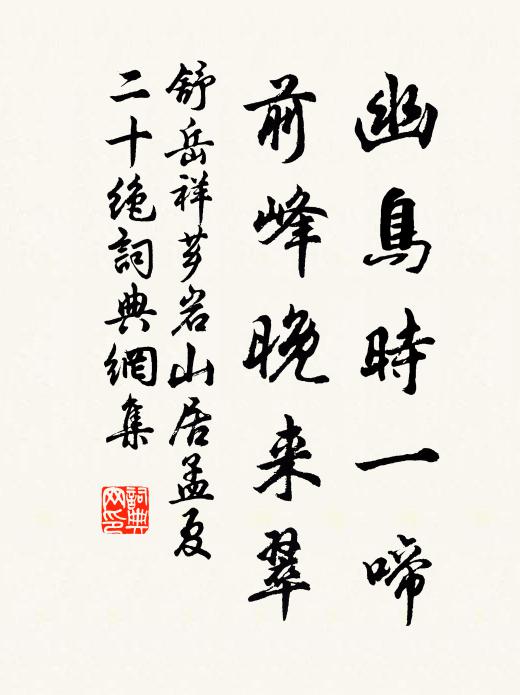 幽鳥時一啼
前峰晚来翠
舒岳祥芗岩山居孟夏
二十绝詞典網集
詞典网印